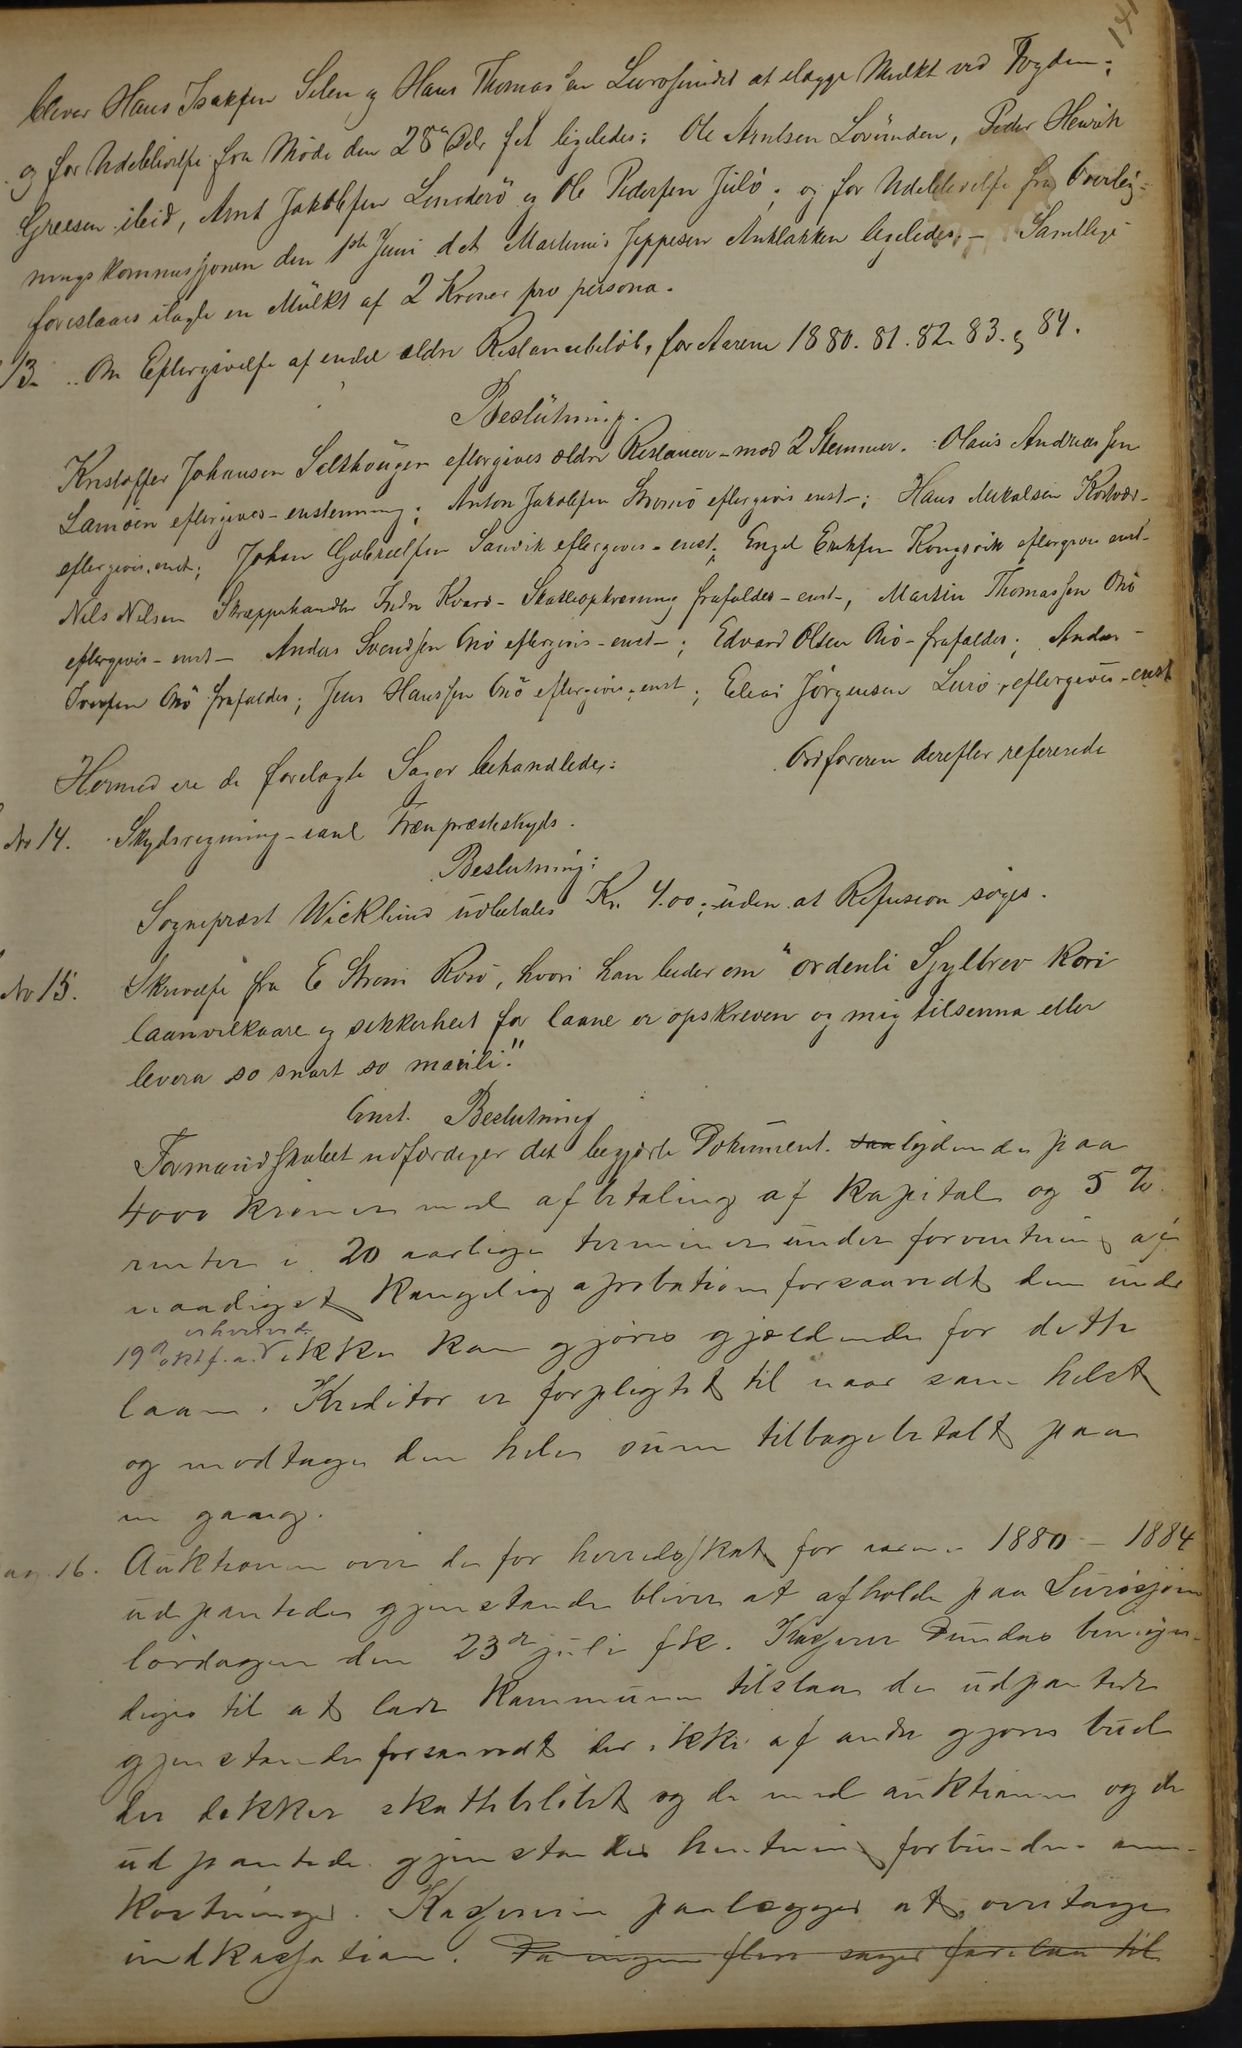 141
bliver Hans Isaksen Selen og Hans Thomassen Lurosundet at ilægge Mulkt ved Fogden;
og for Udeblivelse fra Møde den 28de Dcbr sst ligeledes: Ole Arntsen Lovunden, Peder Henrik
Greesen ibid, Arnt Jakobsen Sonderö og Ole Pedersen Julö; og for Udeblivelse fra Overlig-
ningskommissjonen den 1ste Juni det Martinus Jeppesen Anklakken ligeledes. - Samtlige
foreslaaes ilagte en Mülkt af 2 Kroner pro persona.
13. .. Om Eftergivelse af endel ældre Restancebeløb, for Aarene 1880. 81. 82. 83. og 84.
Beslütning.
Kristoffer Johansen Selthougen eftergives ældre Restancer - mod 2 Stemmer. Olaus Andreassen
Lamöen eftergives - enstemmig; Anton Jakobsen Stromö eftergives enst -; Hans Mikalsen Kvitvær -
eftergives. enst; Johan Gabrielsen Sanvik eftergives - enst; Engel Eriksen Kongsvik eftergives enst -
Nils Nilsen Skræppehandler Indre Kvarö - Skatteopkrævning frafaldes - enst -, Martin Thomassen Onö
eftergives - enst - Anders Svendsen Onö eftergives - enst -; Edvard Olsen Onö - frafaldes; Anders -
Iversen Onö frafaldes; Jens Hanssen Onö eftergives. enst; Elias Jørgensen Lurö, eftergives - enst
Hermed ere de forelagte Sager behandlede: Ordføreren derefter refererede
No 14. Skydsregning - anl Træn præsteskyds.
Beslutning:
Sogneprest Wicklund udbetales Kr. 4.00; uden at Refusion søges.
No 15. Skrivelse fra E Strøm Rosö, hvori han beder om "ordenli Sjylbrev kori
laanvilkaare og sekkerheit for laane er opskreven og mig tilsenna eller
levera so snart so mœuli."
Enst. Beslutning
Formandskabet udfærdiger det begjærte Dokument. saa lydende paa
4000 kroner med afbetaling af kapital og 5 %
renter i 20 aarlige terminer under forventning af
naadigst kongelig aprobation forsaavidt den under
19de oktf. a. erhvervede ikke kan gjöres gjældende for dette
laan. Kreditor er forpligtet til naar som helst
og modtage den hele sum tilbagebetalt paa
en gaang.
16. Auktionen over de for herredsskat for aarene 1880 - 1884
udpantede gjenstande bliver at afholde paa Lurösjöen
lördagen den 23de juli fk. Kasserer Dundas bemyn-
diges til at lade kommunen tilslaa de udpantede
gjenstande forsaavidt der ikke af andre gjöres bud
der dekker skattebelöbet og de med auktionen og de
udpantede gjenstandes hentning forbundne om-
kostninger. Kassereren paalægges at overtage
indkassation. Da ingen flere sager forelaa til